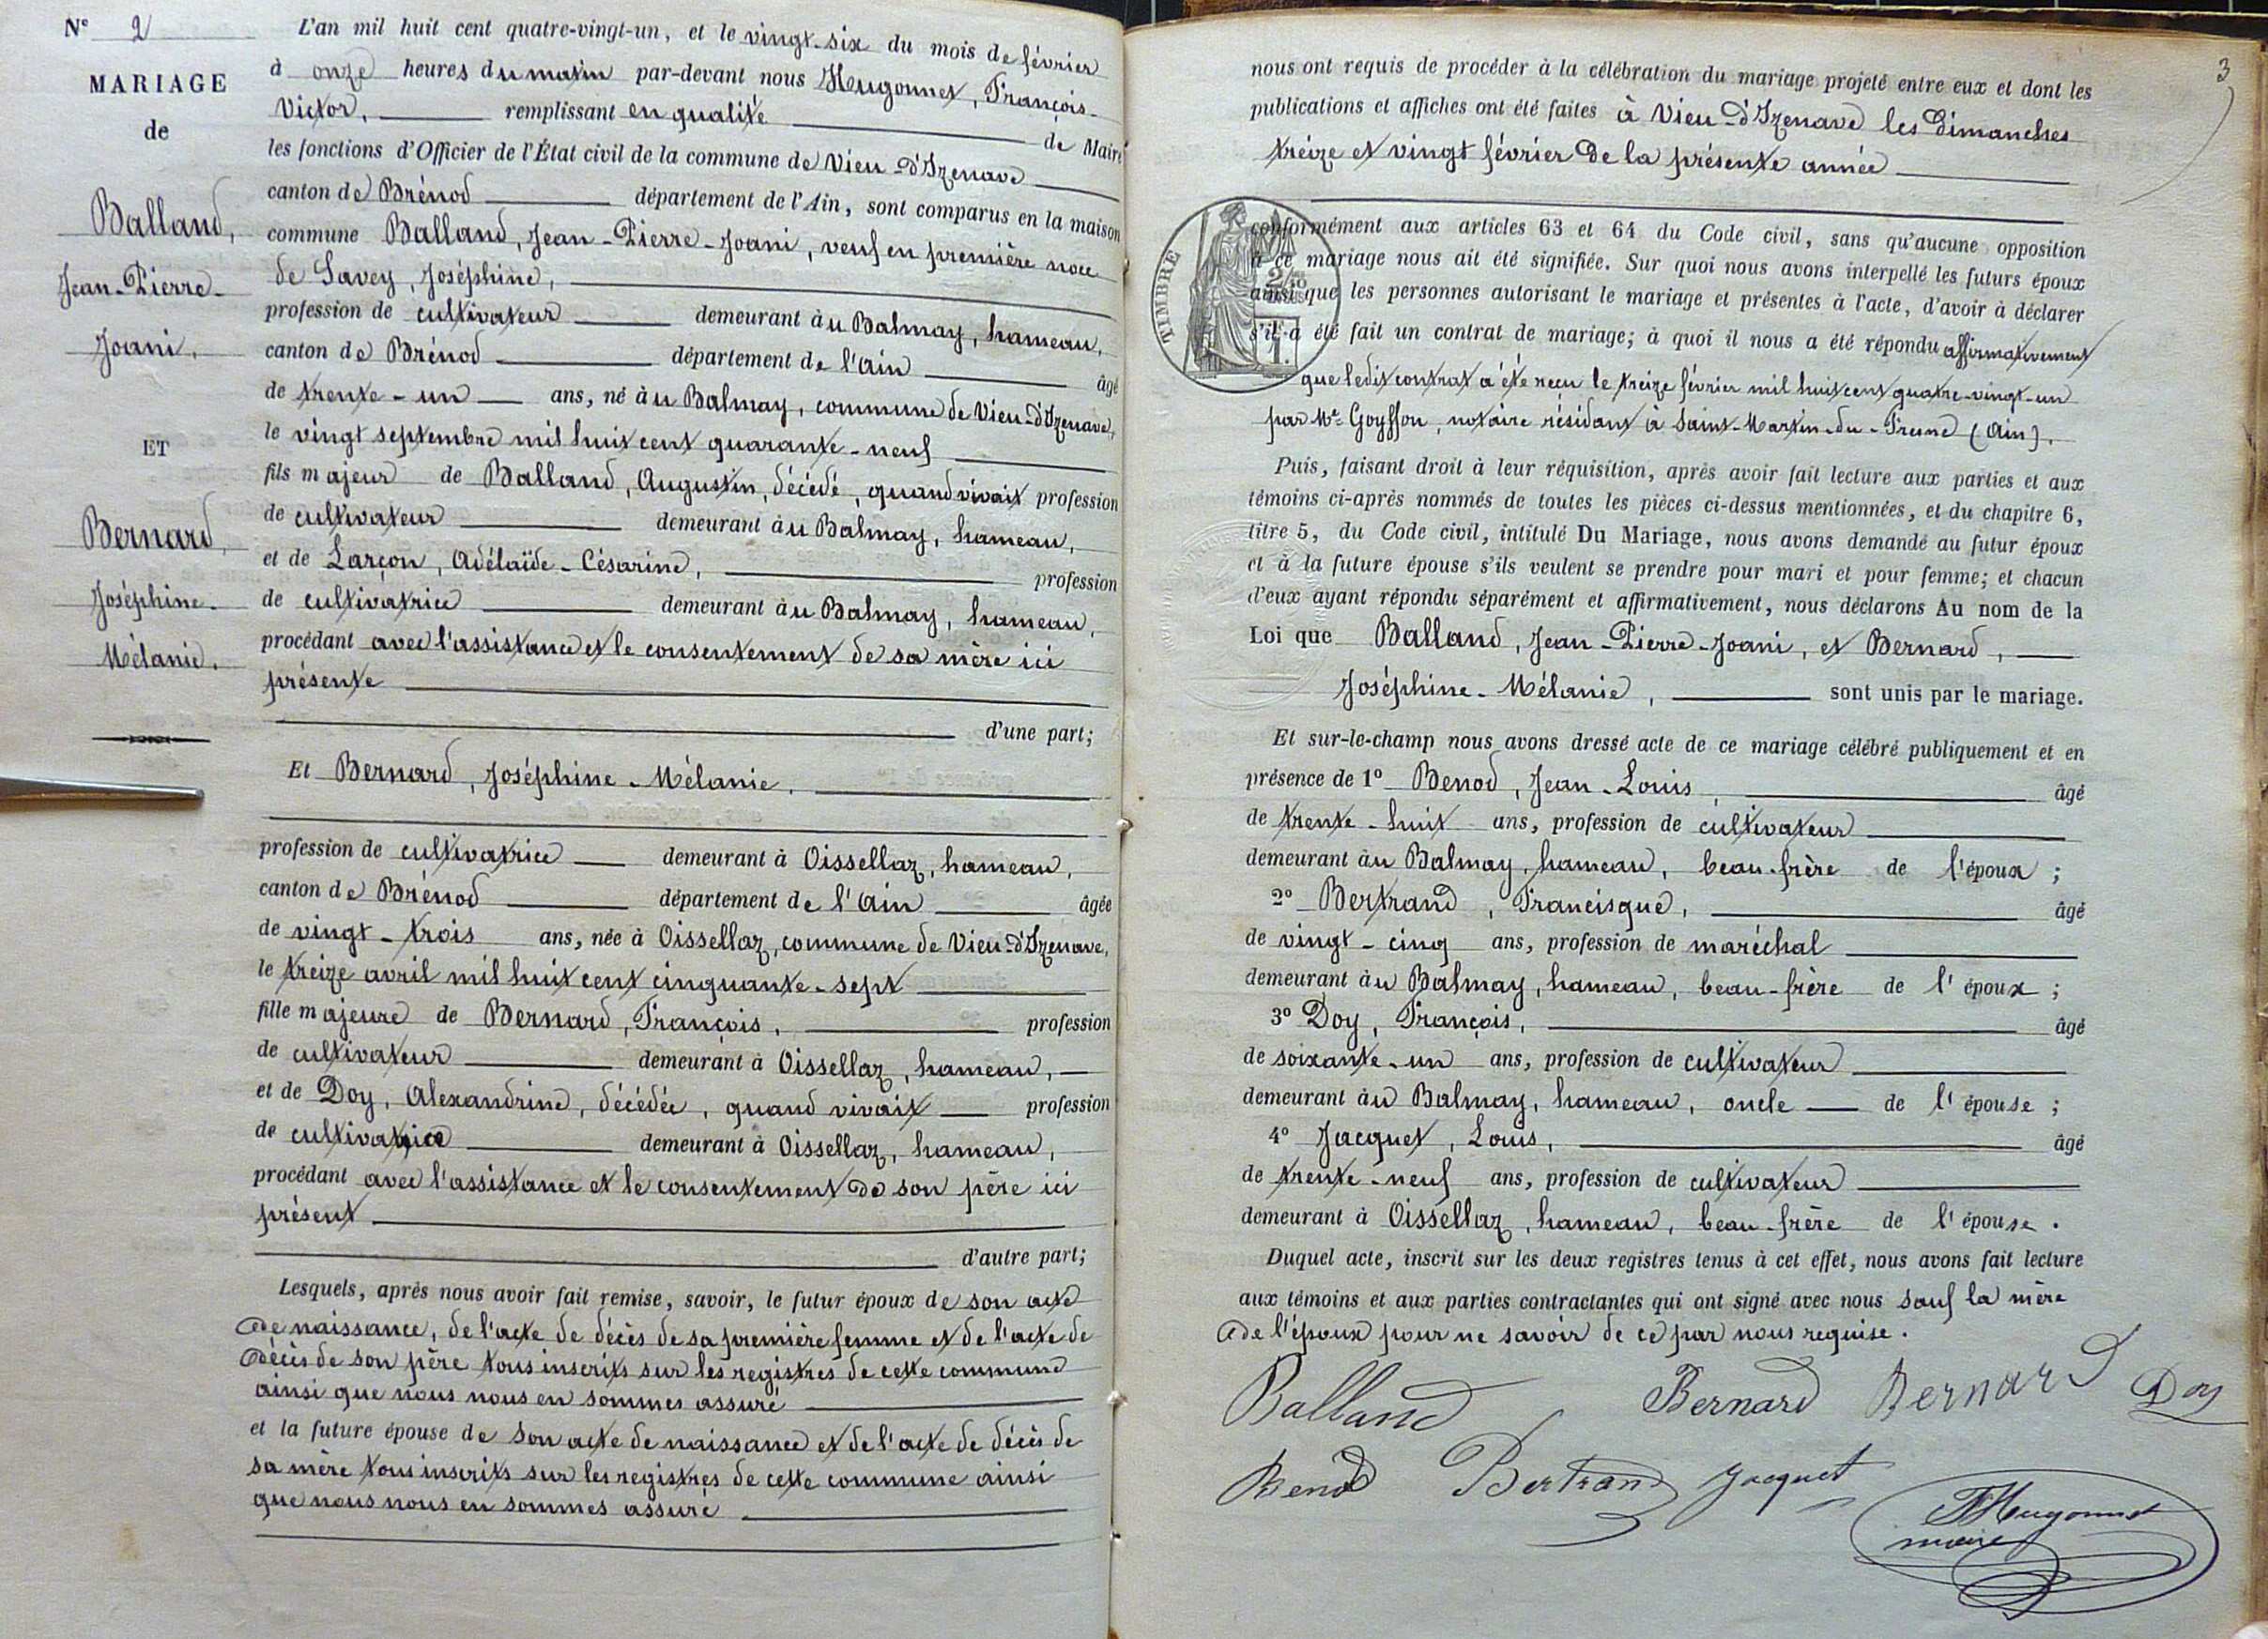 N° 2
MARIAGE
de
Balland,
Jean-Pierre-
Joani.
ET
Bernard,
Joséphine-
Mélanie.
L'an mil huit cent quatre-vingt-un, et le vingt-six du mois de février
à onze heures du matin par-devant nous Hugonnet, François-
Victor, remplissant en qualité de Maire
les fonctions d'Officier de l'État civil de la commune de Vieu-d'Izenave
canton de Brénod département de l'Ain, sont comparus en la maison
commune Balland, Jean-Pierre-Joani, veuf en première noce
de Savey, Joséphine,
profession de cultivateur demeurant au Balmay, hameau,
canton de Brénod département de l'Ain âgé
de trente-un ans, né au Balmay, commune de Vieu-d'Izenave,
le vingt septembre mil huit cent quarante-neuf
fils majeur de Balland, Augustin, décédé, quand vivait profession
de cultivateur demeurant au Balmay, hameau,
et de Larçon, Adélaïde-Césarine, profession
de cultivatrice demeurant au Balmay, hameau,
procédant avec l'assistance et le consentement de sa mère ici
présente
d'une part;
Et Bernard, Joséphine-Mélanie,
profession de cultivatrice demeurant à Oissellaz, hameau,
canton de Brénod département de l'Ain âgée
de vingt-trois ans, née à Oissellaz, commune de Vieu-d'Izenave,
le treize avril mil huit cent cinquante-sept
fille majeure de Bernard, François, profession
de cultivateur demeurant à Oissellaz, hameau,
et de Doy, Alexandrine, décédée, quand vivait profession
de cultivatrice demeurant à Oissellaz, hameau,
procédant avec l'assistance et le consentement de son père ici
présent
d'autre part;
Lesquels, après nous avoir fait remise, savoir, le futur époux de son acte
de naissance, de l'acte de décès de sa première femme et de l'acte de
décès de son père tous inscrits sur les registres de cette commune
ainsi que nous nous en sommes assuré
et la future épouse de son acte de naissance et de l'acte de décès de
sa mère tous inscrits sur les registres de cette commune ainsi
que nous nous en sommes assuré
3
nous ont requis de procéder à la célébration du mariage projeté entre eux et dont les
publications et affiches ont été faites à Vieu-d'Izenave les dimanches
treize et vingt février de la présente année
TIMBRE
conformément aux articles 63 et 64 du Code civil, sans qu'aucune opposition
à ce mariage nous ait été signifiée. Sur quoi nous avons interpellé les futurs époux
ainsi que les personnes autorisant le mariage et présentes à l'acte, d'avoir à déclarer
s'il a été fait un contrat de mariage; à quoi il nous a été répondu affirmativement
que ledit contrat a été reçu le treize février mil huit cent quatre-vingt-un
par Me Goyffon, notaire résidant à Saint-Martin-du-Fresne (Ain).
Puis, faisant droit à leur réquisition, après avoir fait lecture aux parties et aux
témoins ci-après nommés de toutes les pièces ci-dessus mentionnées, et du chapitre 6,
titre 5, du Code civil, intitulé Du Mariage, nous avons demandé au futur époux
et à la future épouse s'ils veulent se prendre pour mari et pour femme; et chacun
d'eux ayant répondu séparément et affirmativement, nous déclarons Au nom de la
Loi que Balland, Jean-Pierre-Joani, et Bernard,
Joséphine-Mélanie, sont unis par le mariage.
Et sur-le-champ nous avons dressé acte de ce mariage célébré publiquement et en
présence de 1° Benod, Jean-Louis, âgé
de trente-huit ans, profession de cultivateur
demeurant au Balmay, hameau, beau-frère de l'époux;
2° Bertrand, Francisque, âgé
de vingt-cinq ans, profession de maréchal
demeurant au Balmay, hameau, beau-frère de l'époux;
3° Doy, François, âgé
de soixante-un ans, profession de cultivateur
demeurant au Balmay, hameau, oncle de l'épouse;
4° Jacquet, Louis, âgé
de trente-neuf ans, profession de cultivateur
demeurant à Oissellaz, hameau, beau-frère de l'épouse.
Duquel acte, inscrit sur les deux registres tenus à cet effet, nous avons fait lecture
aux témoins et aux parties contractantes qui ont signé avec nous sauf la mère
de l'époux pour ne savoir de ce par nous requise.
Balland Bernard Bernard Doy
Benod Bertrand Jacquet
Hugonnet
maire